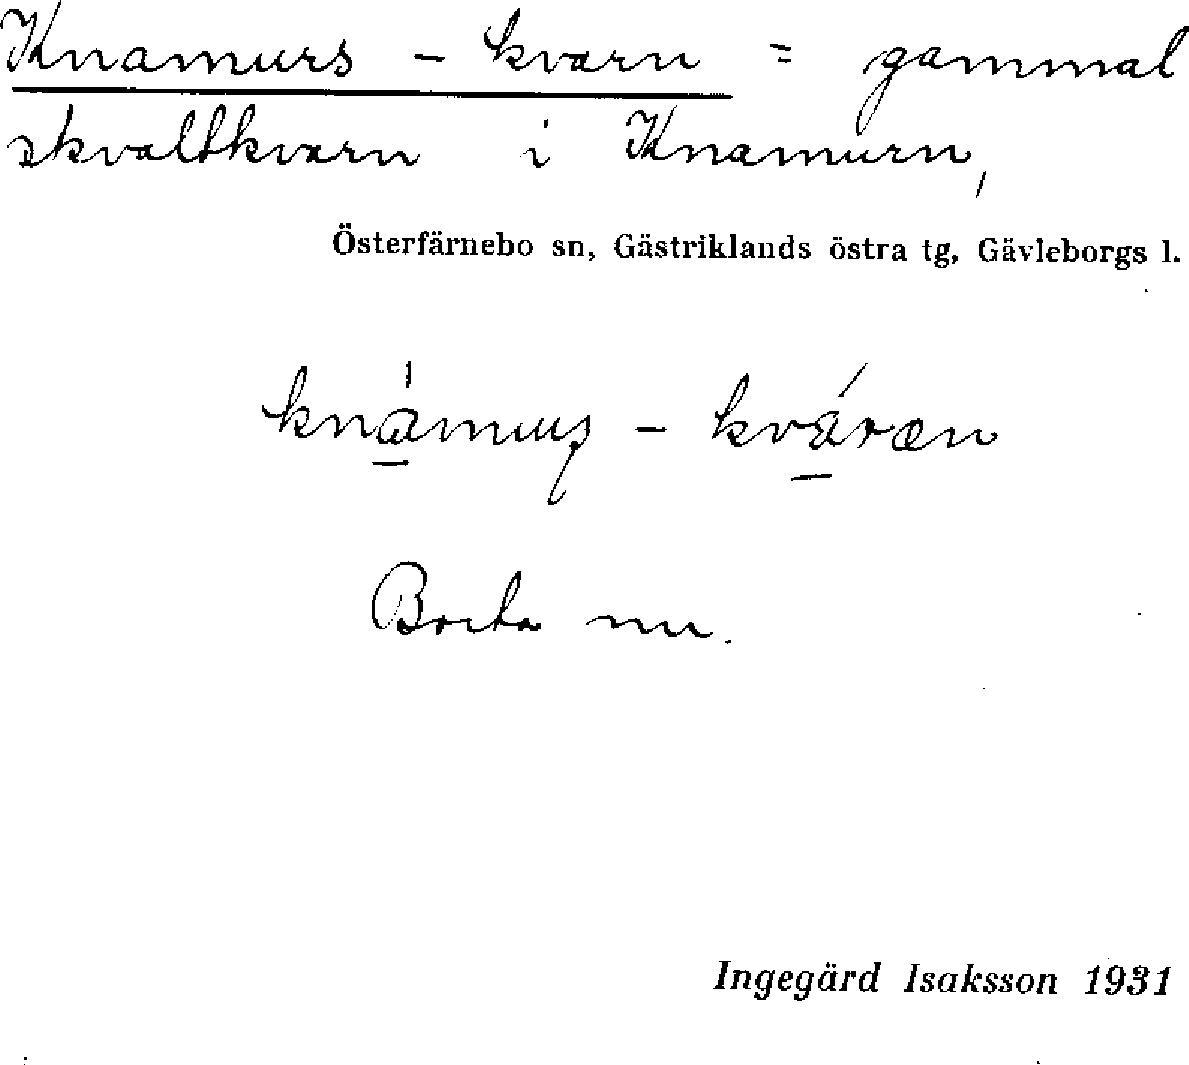 Knamurs - kvarn = gammal
skvaltkvarn i Knamurn,
Österfärnebo sn, Gästriklands östra tg, Gävleborgs l.
knámuʂ - kváræn
Borta nu.
Ingegärd Isaksson 1931